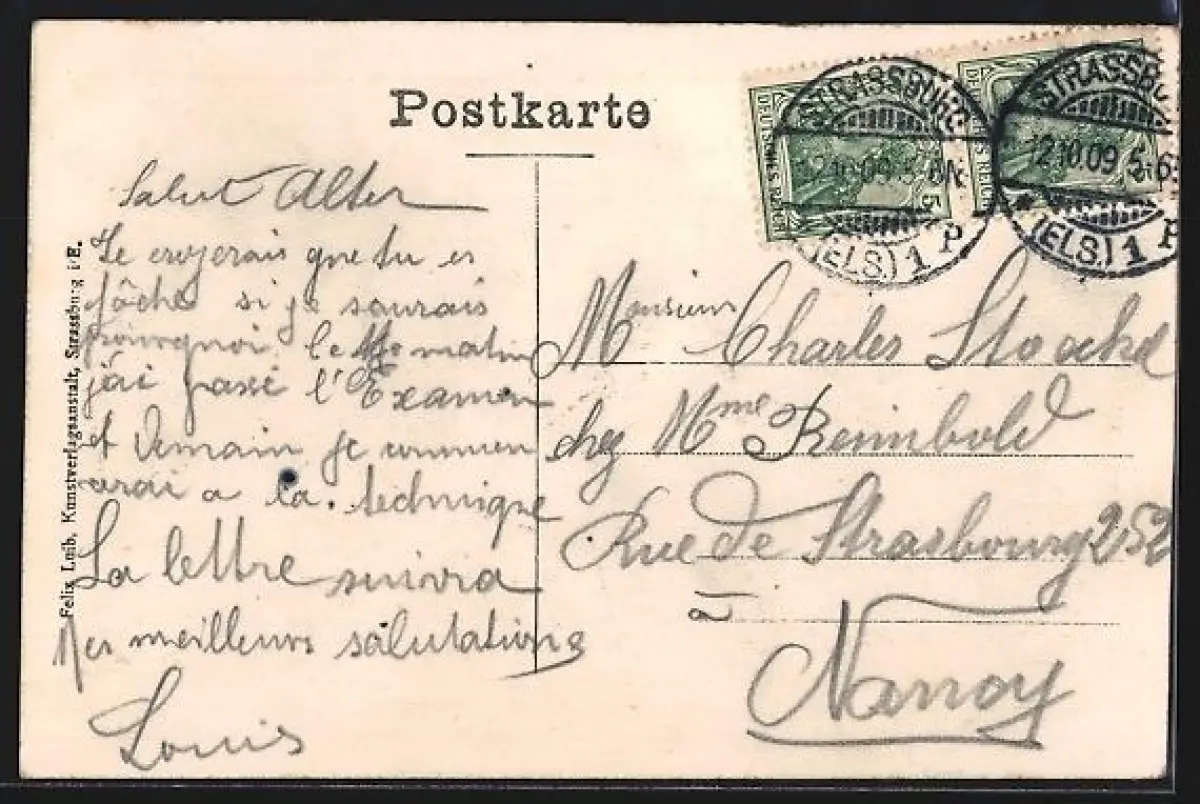 Postkarte
STRASSBURG
12.10.09. 5-6N
(ELS.) 1 P
DEUTSCHES REICH
5
STRASSBU
12.10.09. 5-6
(ELS.) 1 P
REICH
Salut Alter
Je croyerais que tu es
fâché si je saurais
pourquoi. Ce matin
j'ai passé l'Examen
et demain je commen
cerai a la technique
La lettre suivra
Mes meilleurs salutations
Louis
Monsieur Charles
chez Mme Reimbold
Rue de Strasbourg 252
à
Nancy
Felix Luib, Kunstverlagsanstalt, Strassburg i/E.